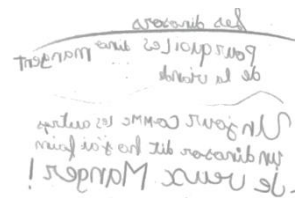 Les dinosors
pourquoi Les dino mangent
de la viande
Un jour comme les autres
un dinosor dit ho j'ai faim
Je veux Manger !